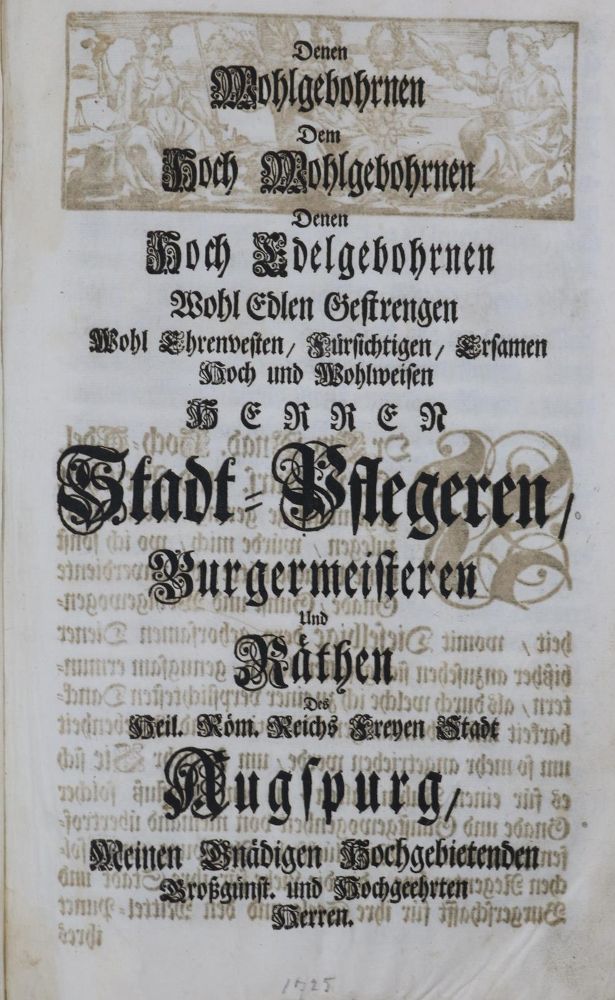 Denen
Wohlgebohrnen
Dem
Hoch Wohlgebohrnen
Denen
Hoch Edelgebohrnen
Wohl Edlen Gestrengen
Wohl Ehrenvesten/ Fürsichtigen/ Ersamen
Hoch und Wohlweisen
HERREN
Stadt-Pflegeren/
Burgermeisteren
Und
Räthen
Des
Heil. Röm. Reichs Freyen Stadt
Augspurg/
Meinen Gnädigen Hochgebietenden
Großgünst. und Hochgeehrten
Herren.
1725